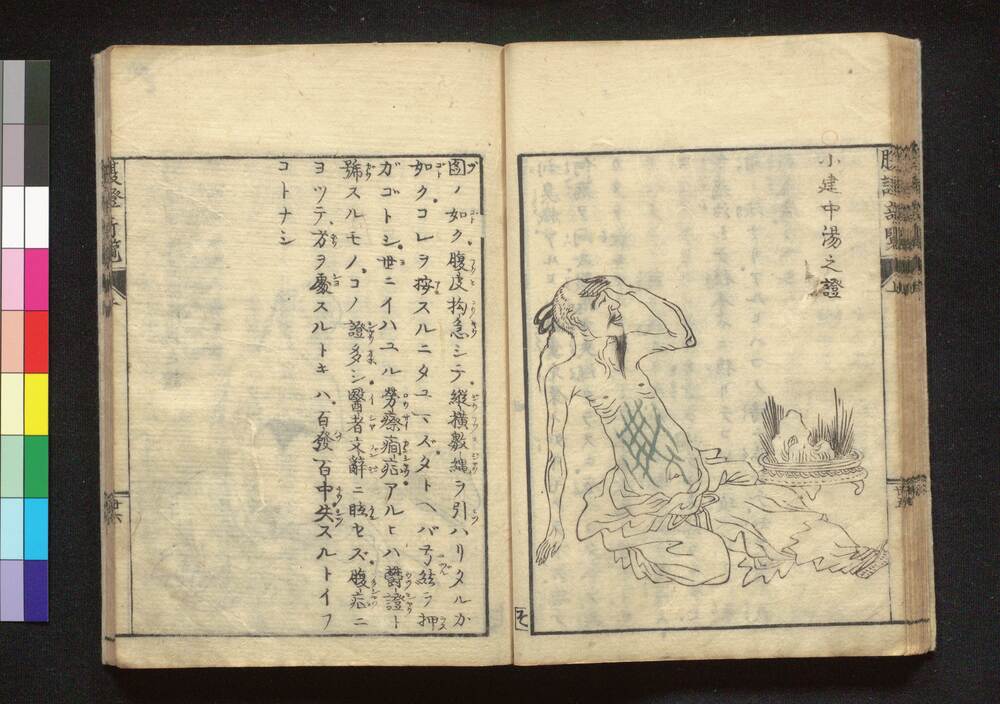 小建中湯之證
圖ノ如ク腹皮拘急シテ縱横數繩ヲ引ハリタルカ
如クコレヲ按スルニタユマズタトヘバ弓絃ヲ押
ガゴトシ世ニイハユル勞瘵癎症アルヒハ欝證ト
號スルモノコノ證多シ醫者文辭ニ眩セズ腹症ニ
ヨツテ方ヲ處スルトキハ百發百中失スルトイフ
コトナシ